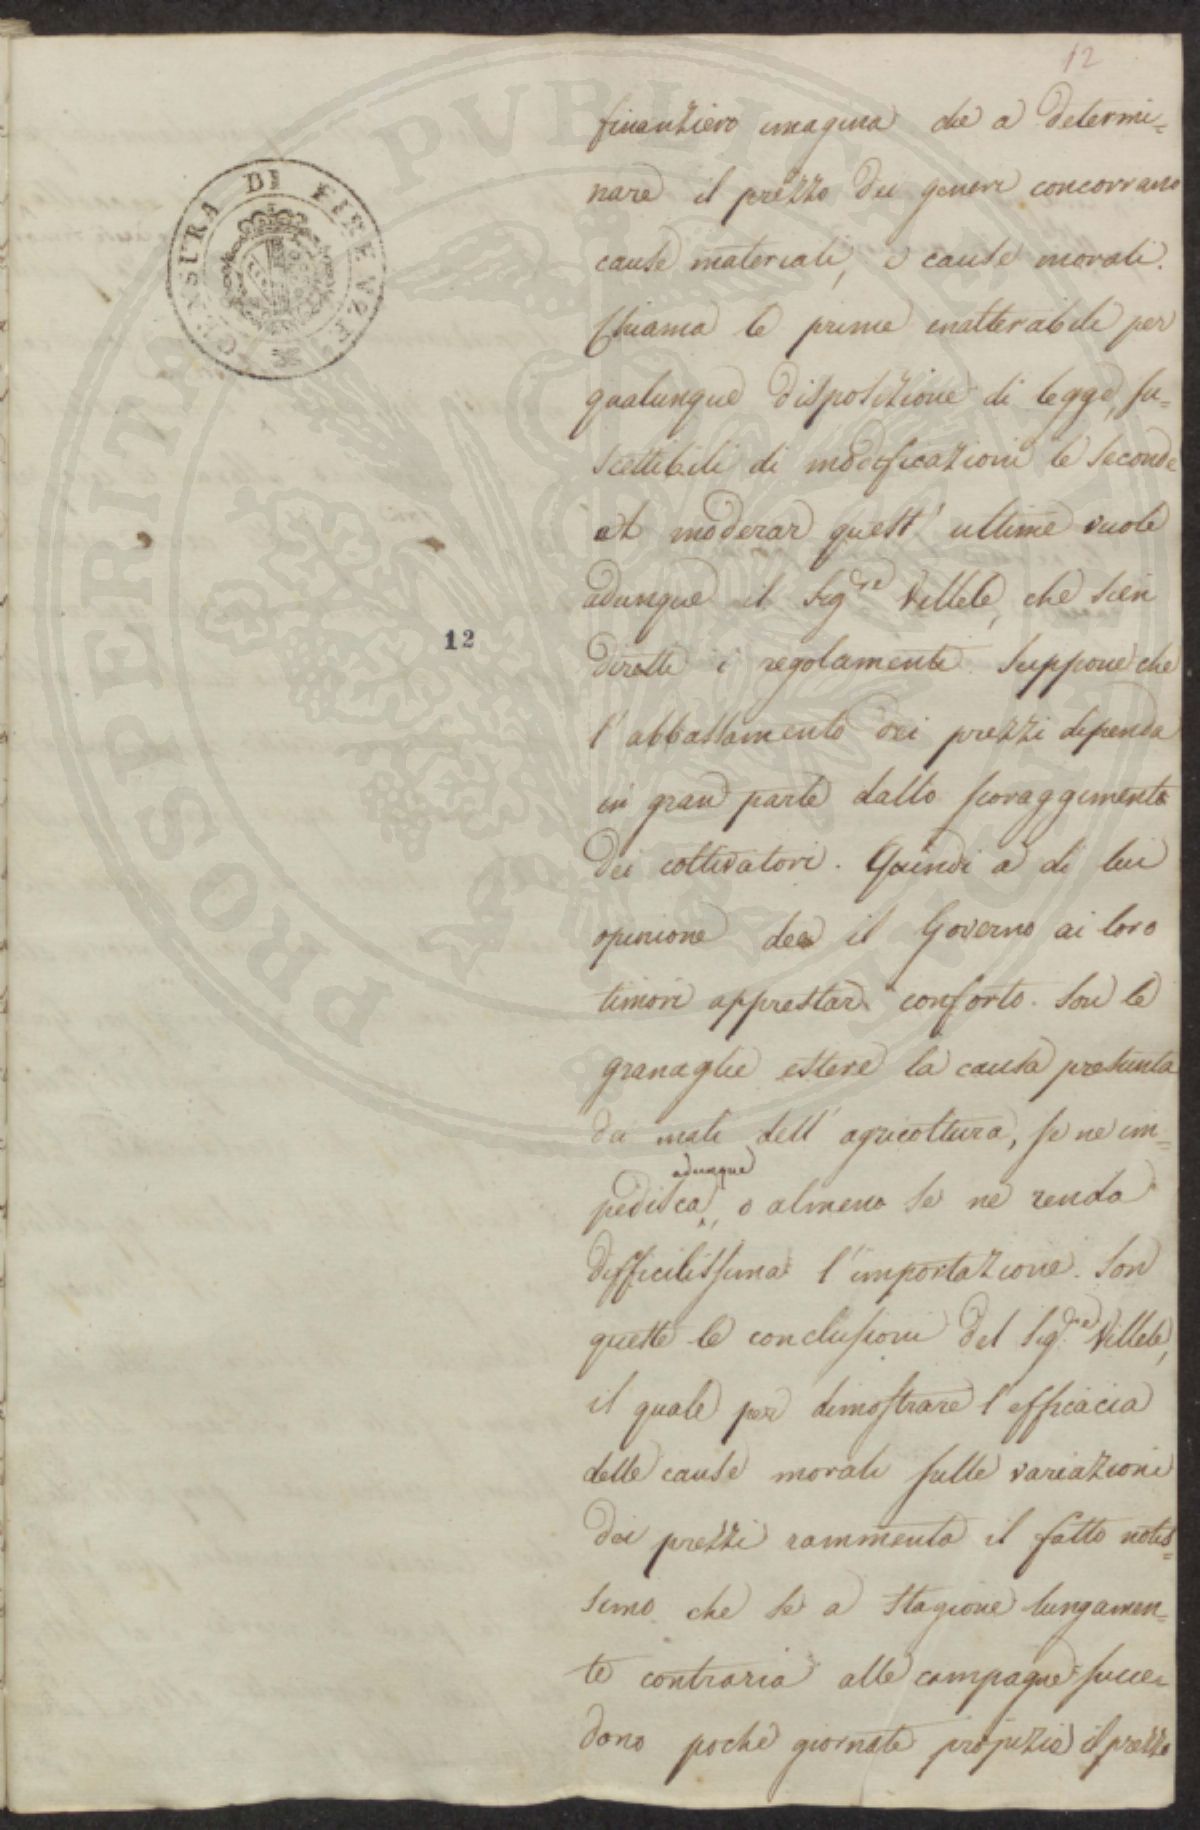 12
finanziero imagina che a determi=
nare il prezzo dei generi concorrano
cause materiali, e cause morali.
Chiama le prime inalterabili per
qualunque disposizione di legge, su=
scettibili di modificazioni le seconde
A moderar quest' ultime vuole
adunque il Sig.re Villele, che sien
diretti i regolamenti. Suppone che
l' abbassamento dei prezzi dipenda
in gran parte dallo scoraggimento
dei coltivatori. Quindi a di lui
opinione dee il Governo ai loro
timori apprestar conforto. Son le
granaglie estere la causa presunta
dei mali dell' agricoltura, se ne im=
pedisca adunque, o almeno se ne renda
difficilissima l' importazione. Son
queste le conclusioni del Sig.re Villele,
il quale per dimostrare l' efficacia
delle cause morali sulle variazioni
dei prezzi rammenta il fatto notis=
simo che se a stagione lungamen=
te contraria alle campagne succe=
dono poche giornate propizie il prezzo
CENSURA DI FIRENZE
12
PROSPERITATI PUBLICAE